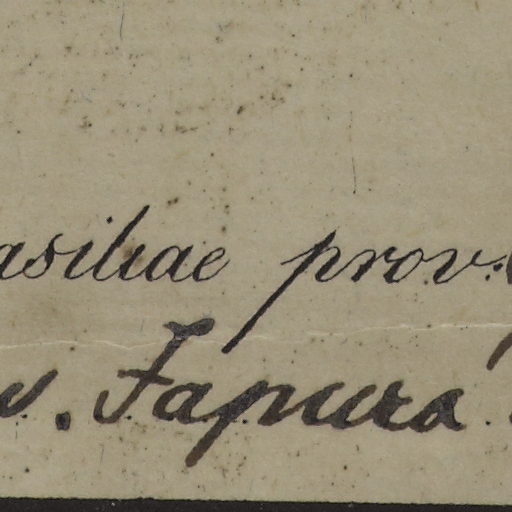 asiliae prov.
v. Japurá